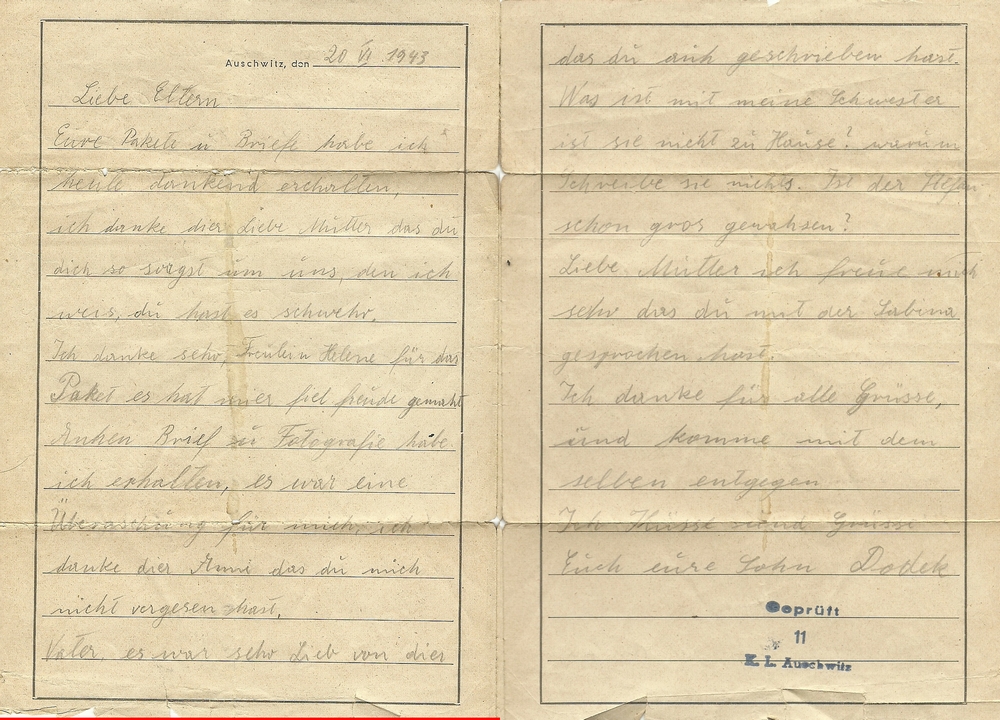 Auschwitz, den 20 VI. 1943
Liebe Eltern
Eure Pakete u Briefe habe ich
heute dankend ercholten,
ich danke dier Liebe Mutter das du
dich so sorgst um uns, den ich
weis, du hast es schwehr.
Ich danke sehr, Freulein Helene für das
Paket es hat mier fiel freude gemacht
Brief zu Fotografie habe
ich erhalten, es war eine
Überaschung für mich, ich
danke dier Anni das du mich
nicht vergesen hast.
Vater, es war sehr Lieb von dier
das du auch geschrieben hast.
Was ist mit meine Schwester
ist sie nicht zu Hause? warum
Schreibt sie nichts. Ist der
schon gros gewahsen?
Liebe Mutter ich freue mich
sehr das du mit der Sabina
gesprochen hast.
Ich danke für alle Grüsse,
und komme mit dem
selben entgegen
Ich Küsse und Grüsse
Euch eure Sohn Dodek
Geprüft
11
K. L. Auschwitz